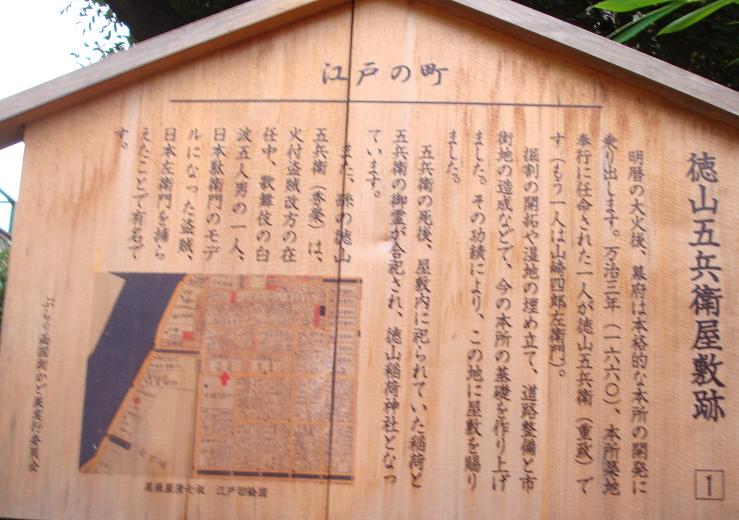 江戸の町
徳山五兵衛屋敷跡
1
明暦の大火後、幕府は本格的な本所の開発に
乗り出します。万治三年（一六六〇）、本所築地
奉行に任命された一人が徳山五兵衛（重政）で
す（もう一人は山崎四郎左衛門）。
掘割の開拓や湿地の埋め立て、道路整備と市
街地の造成などで、今の本所の基礎を作り上げ
ました。その功績により、この地に屋敷を賜り
ました。
五兵衛の死後、屋敷内に祀られていた稲荷と
五兵衛の御霊が合祀され、徳山稲荷神社となっ
ています。
また、孫の徳山
五兵衛（秀栄）は、
火付盗賊改方の在
任中、歌舞伎の白
波五人男の一人、
日本駄衛門のモデ
ルになった盗賊、
日本左衛門を捕ら
えたことで有名で
す。
尾張屋清七板 江戸切絵図
ぶらり両国街かど展実行委員会